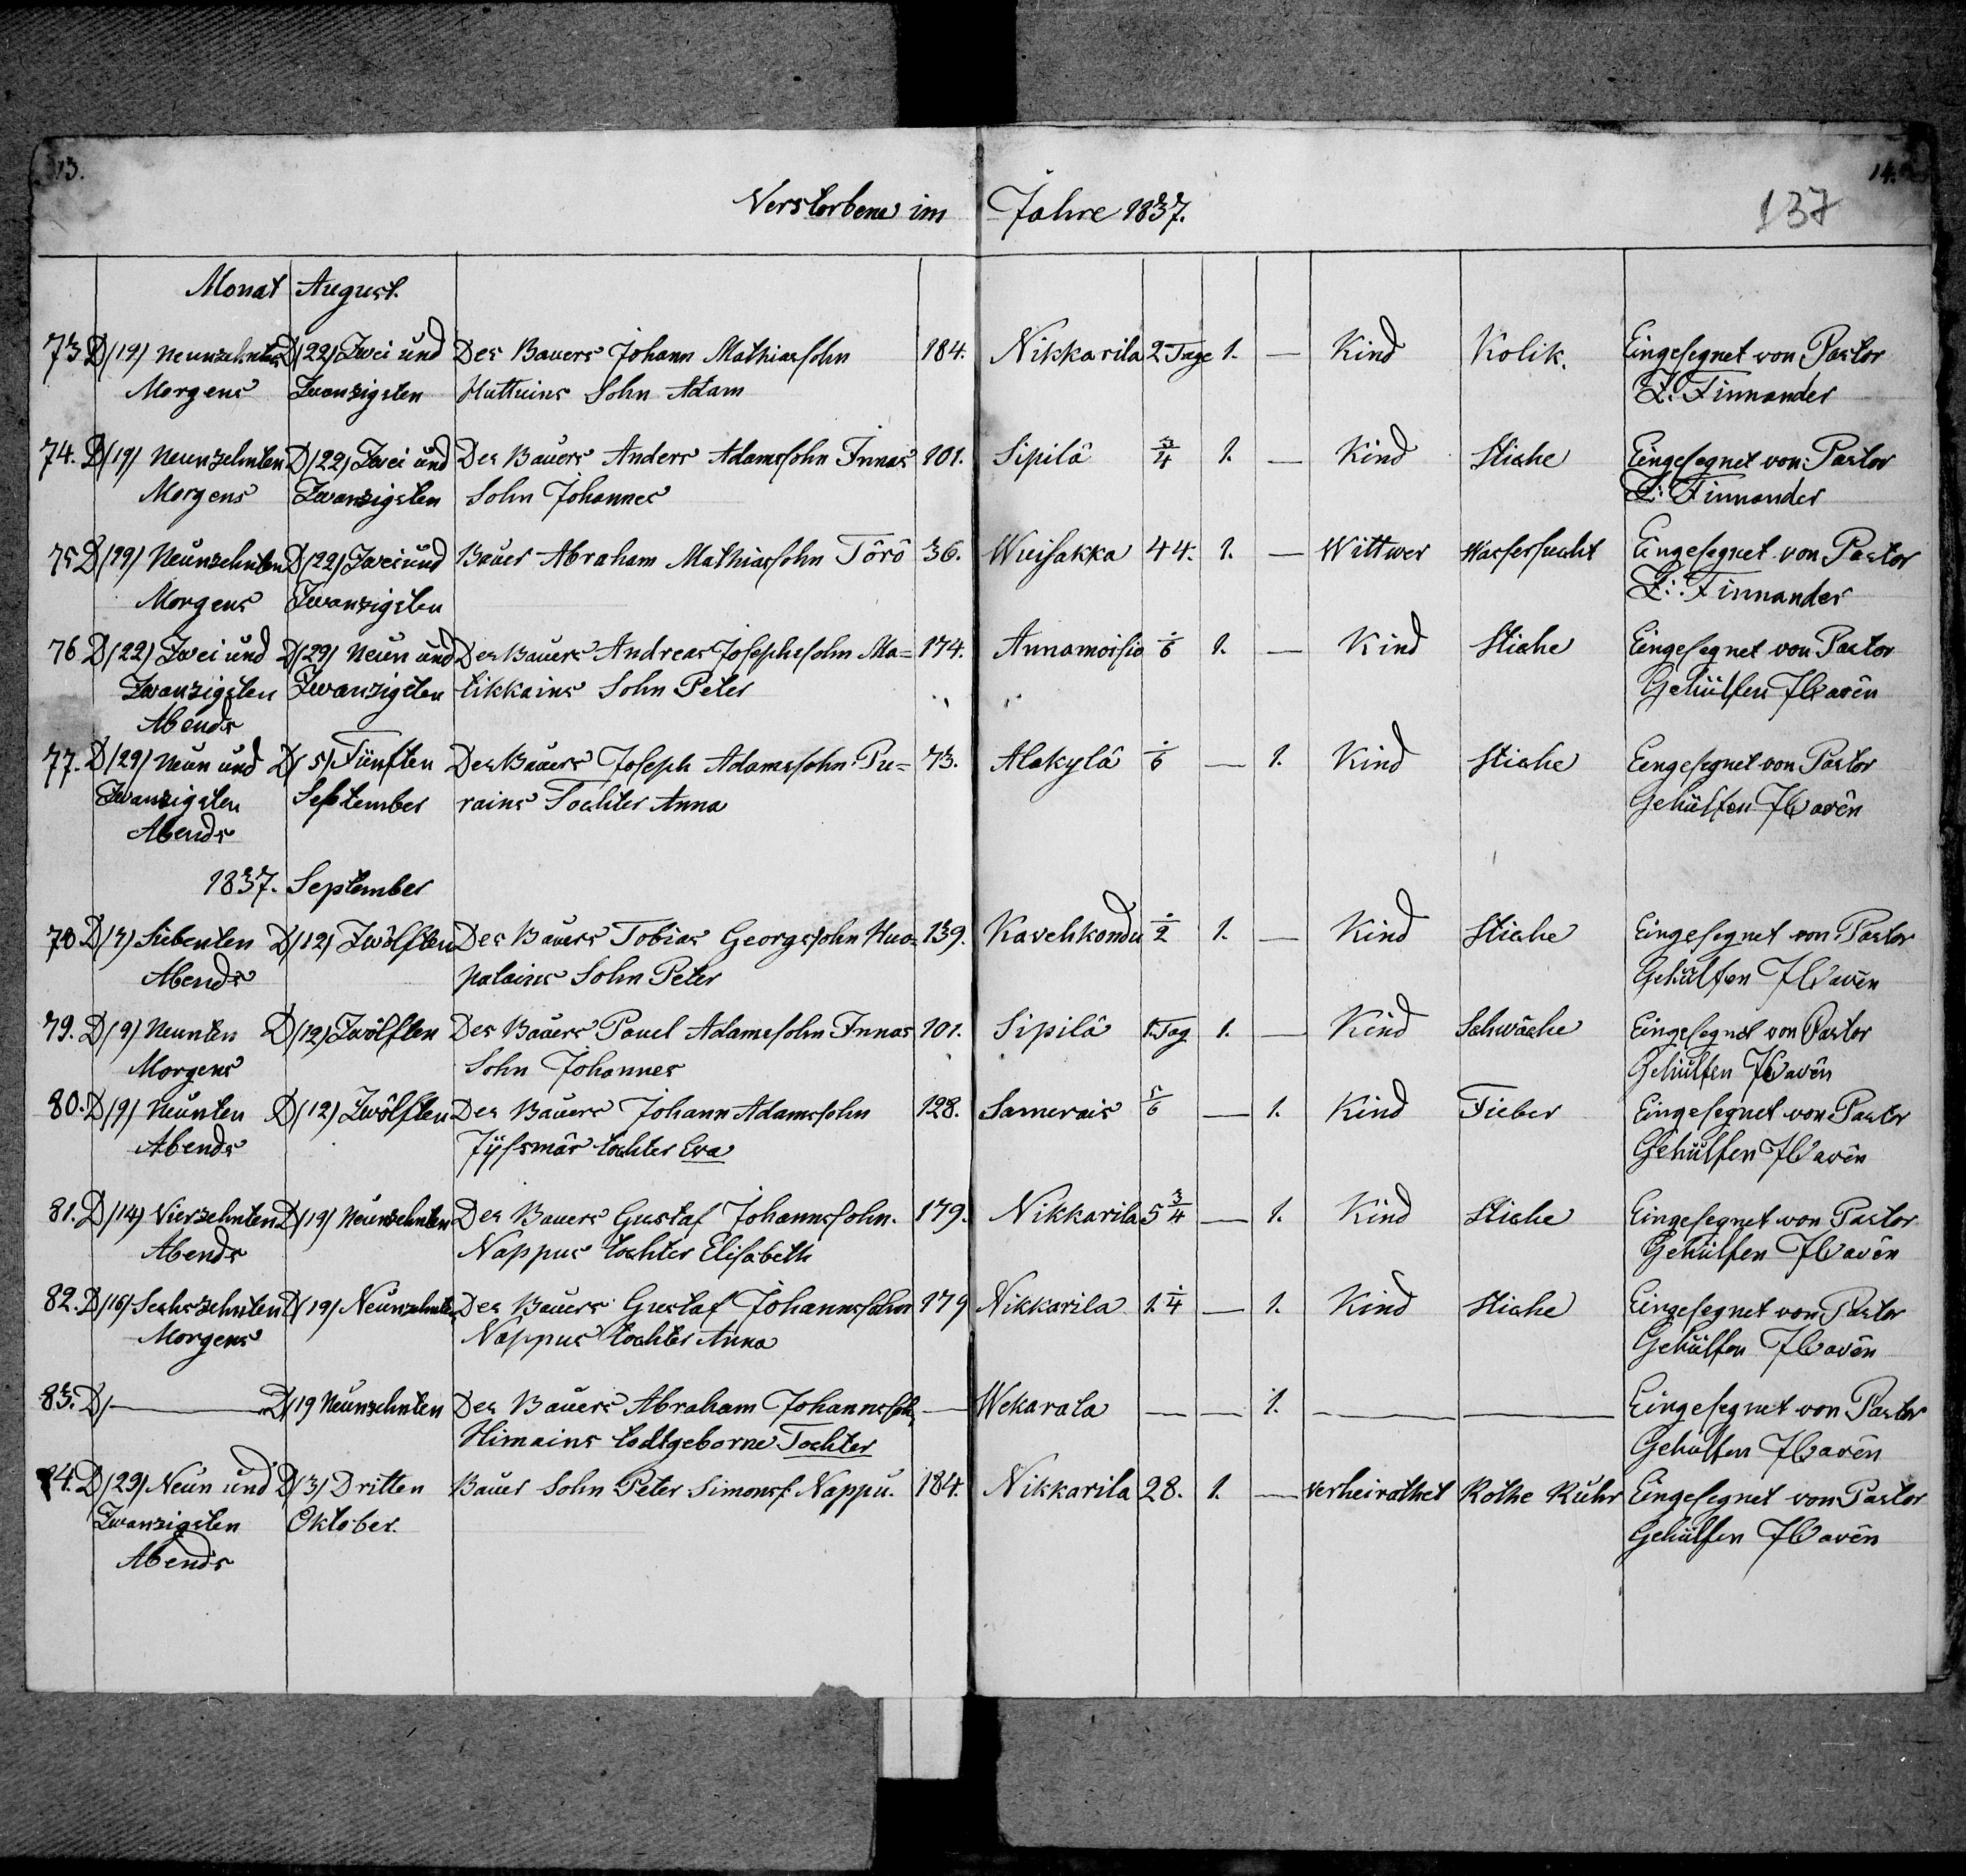 13.
14.
137
Verstorbene im Jahre 1837.
Monat August.
73 D/19/ Neunzehnten D/22/ Zwei und Des Bauers Johann Mathiassohn 184. Nikkarila 2 Tage 1. — Kind Kolik. Eingesegnet von Pastor
Morgens Zwanzigsten Huttuins Sohn Adam Z: Finnander
74. D/19/ Neunzehnten D/22/ Zwei und Des Bauers Anders Adamssohn Innas 101. Sipilä 3/4 1. — Kind Stiche Eingesegnet von Pastor
Morgens Zwanzigsten Sohn Johannes Z: Finnander
75 D/19/ Neunzehnten D/22/ Zwei und Bauer Abraham Mathiassohn Törö 36. Wiisakka 44. 1. — Wittwer Wassersucht Eingesegnet von Pastor
Morgens Zwanzigsten Z: Finnander
76 D/22/ Zwei und D/29/ Neun und Des Bauers Andreas Josephssohn Ma= 174. Annamoisio 1/6 1. — Kind Stiche Eingesegnet von Pastor
Zwanzigsten Zwanzigsten tikkains Sohn Peter Gehülfen Havén
Abends
77. D/29/ Neun und D/5/ Fünften Des Bauers Joseph Adamssohn Pu= 73. Alakylä 1/6 — 1. Kind Stiche Eingesegnet von Pastor
Zwanzigsten September rains Tochter Anna Gehülfen Havén
Abends
1837. September
78 D/7/ Siebenten D/12/ Zwölften Des Bauers Tobias Georgssohn Huo= 139. Kavehkondu 1/2 1. — Kind Stiche Eingesegnet von Pastor
Abends palains Sohn Peter Gehülfen Havén
79. D/9/ Neunten D/12/ Zwölften Des Bauers Pauel Adamssohn Innas 101. Sipilä 1. Tag 1. — Kind Schwäche Eingesegnet von Pastor
Morgens Sohn Johannes Gehülfen Havén
80. D/9/ Neunten D/12/ Zwölften Des Bauers Johann Adamssohn 128. Samerais 5/6 — 1. Kind Fieber Eingesegnet von Pastor
Abends Jÿsmär tochter Eva Gehülfen Havén
81. D/14/ Vierzehnten D/19/ Neunzehnten Des Bauers Gustaf Johannssohn. 179. Nikkarila 5 3/4 — 1. Kind Stiche Eingesegnet von Pastor
Abends Nappus tochter Elisabeth Gehülfen Havén
82. D/16/ Sechszehnten D/19/ Neunzehnten Des Bauers Gustaf Johannssohn 179 Nikkarila 1. 1/4 — 1. Kind Stiche Eingesegnet von Pastor
Morgens Nappus tochter Anna Gehülfen Havén
83. D/ — D/19 Neunzehnten Des Bauers Abraham Johannssoh — Wekarala — — 1. — — Eingesegnet von Pastor
Himains todtgeborne Tochter Gehülfen Havén
84. D/29/ Neun und D/3/ Dritten Bauer Sohn Peter Simonss. Nappu. 184. Nikkarila 28. 1. — verheirathet Rothe Ruhr Eingesegnet von Pastor
Zwanzigsten Oktober. Gehülfen Havén
Abends